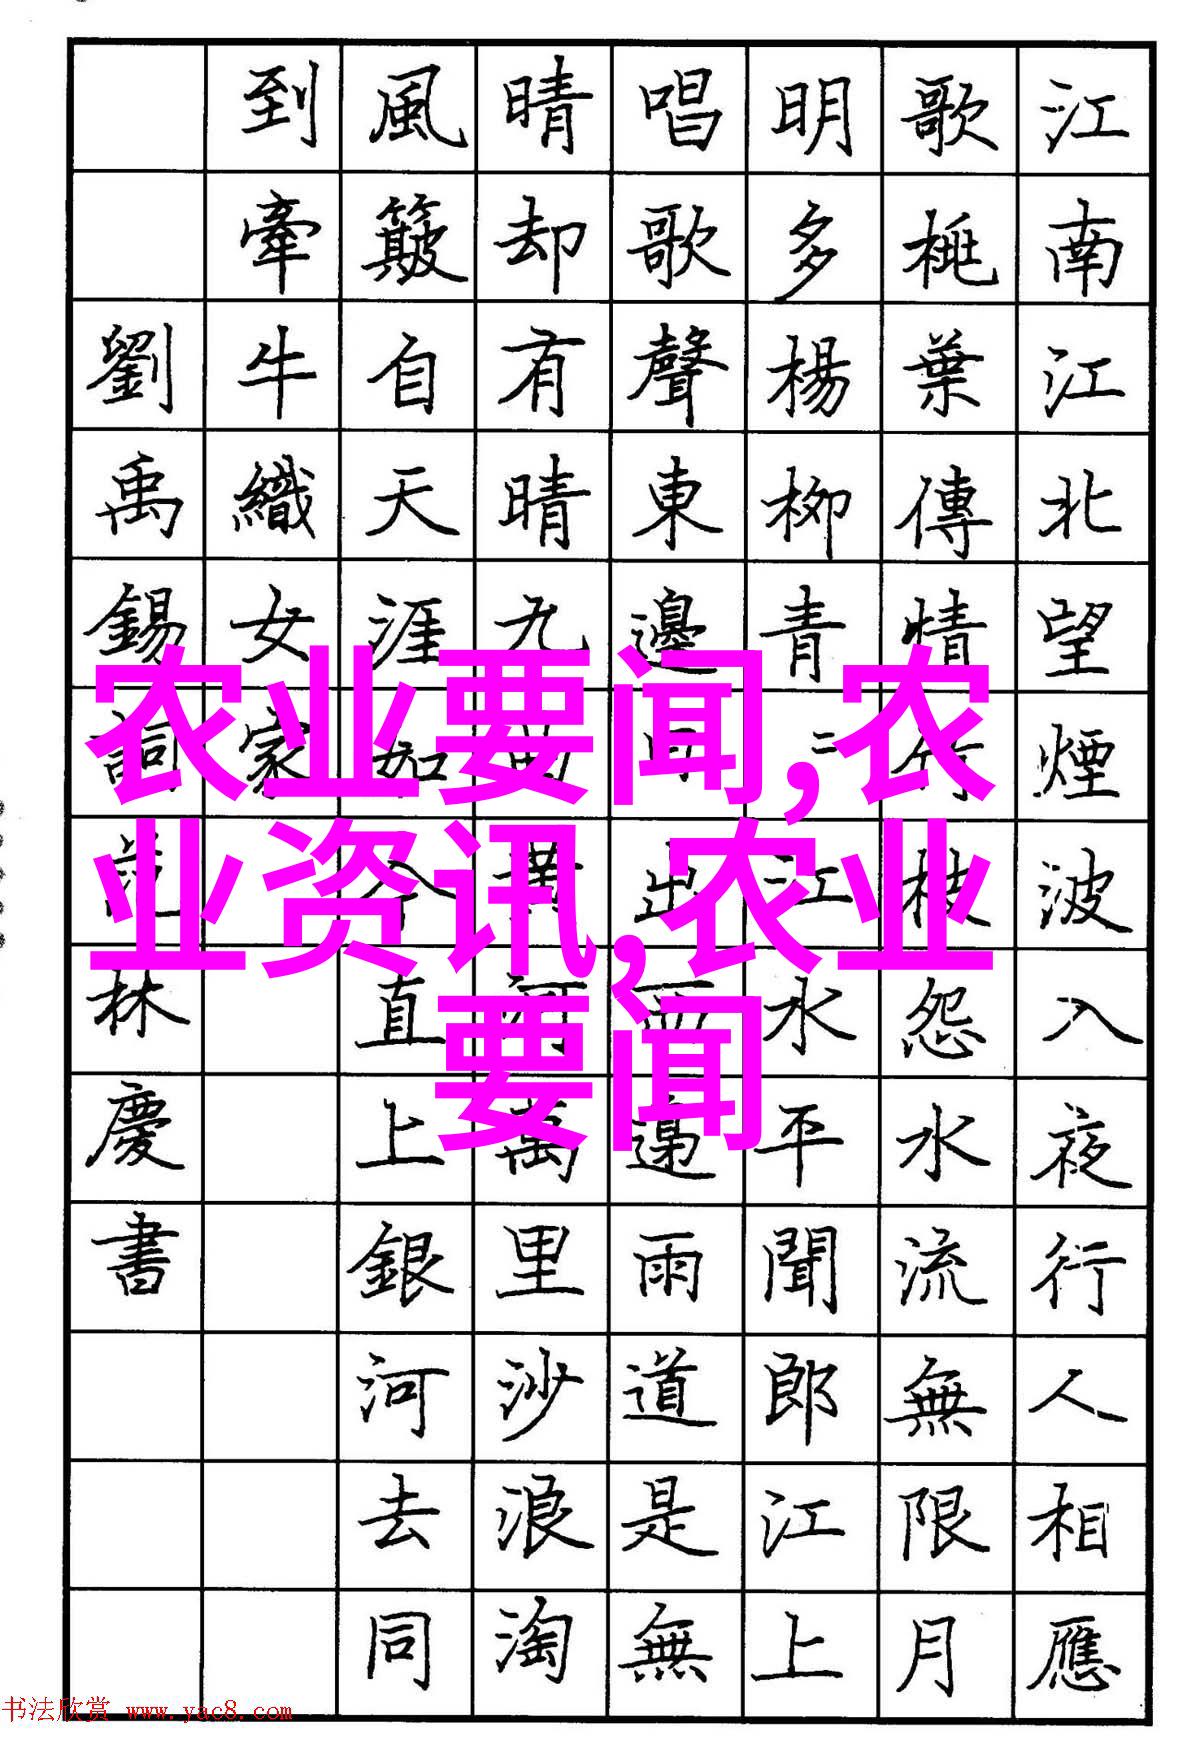 江南江北望煙波入夜行人相應
歌桃葉傳情竹枝怨水流無限月
明多楊柳青二江水平聞郎江上
唱歌聲東邊日出西邊雨道是無
晴却有晴九曲黄河萬里沙浪淘
風簸自天涯如今直上銀河去同
到牽牛織女家
劉禹錫詞林慶書
农业要闻,农
业资讯,农业
要闻
书法欣赏 www.yac8.com